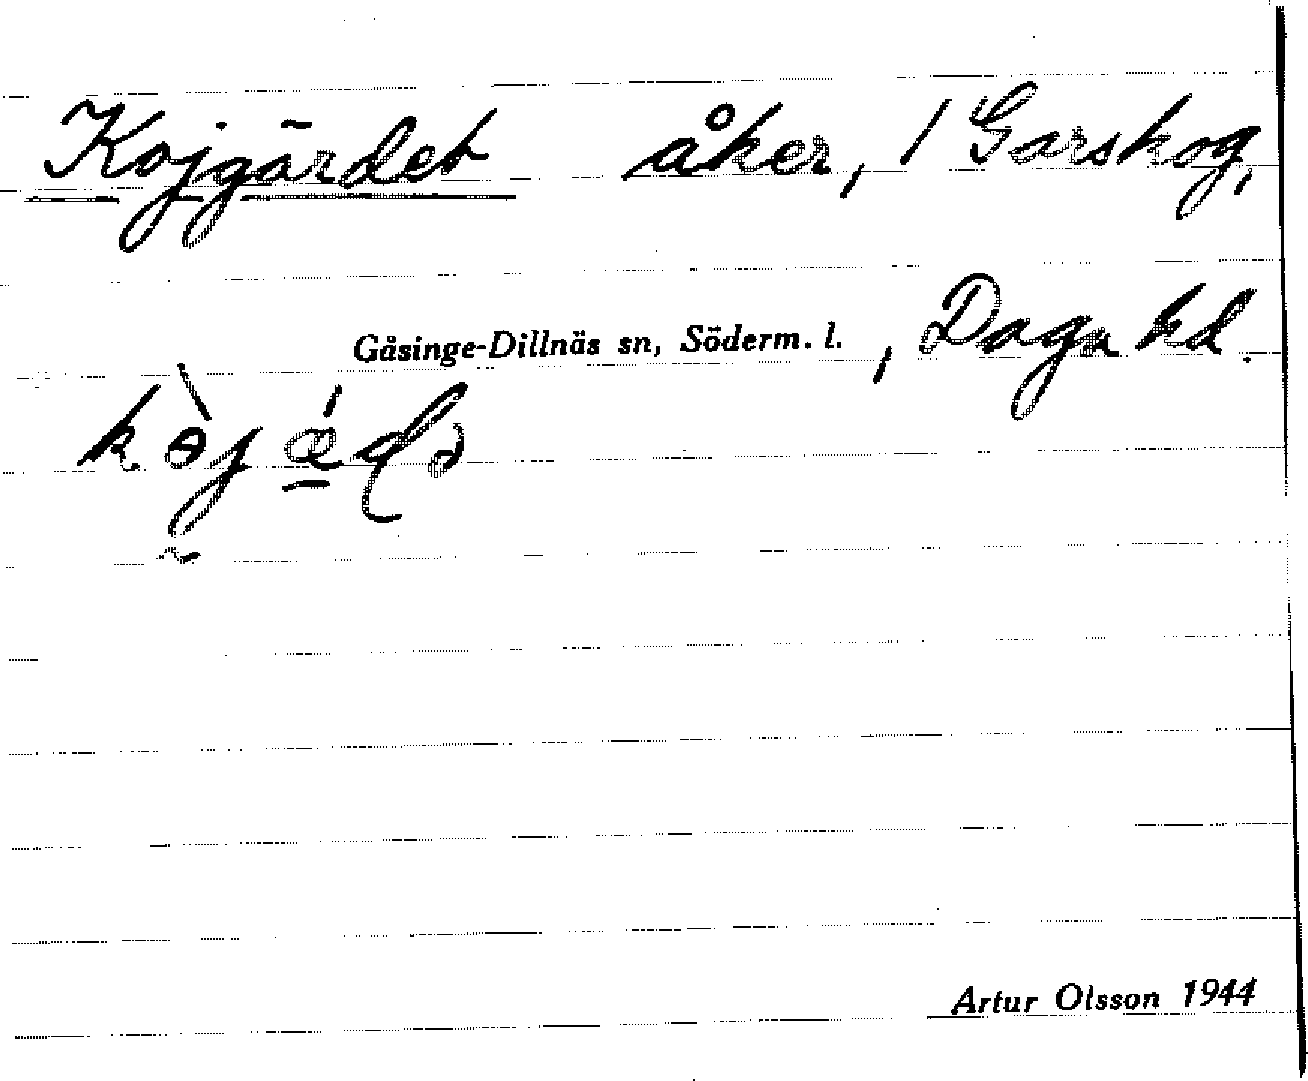 Kojgärdet åker, 1 Garskog,
Gåsinge-Dillnäs sn, Söderm. l., Daga hd.
Artur Olsson 1944